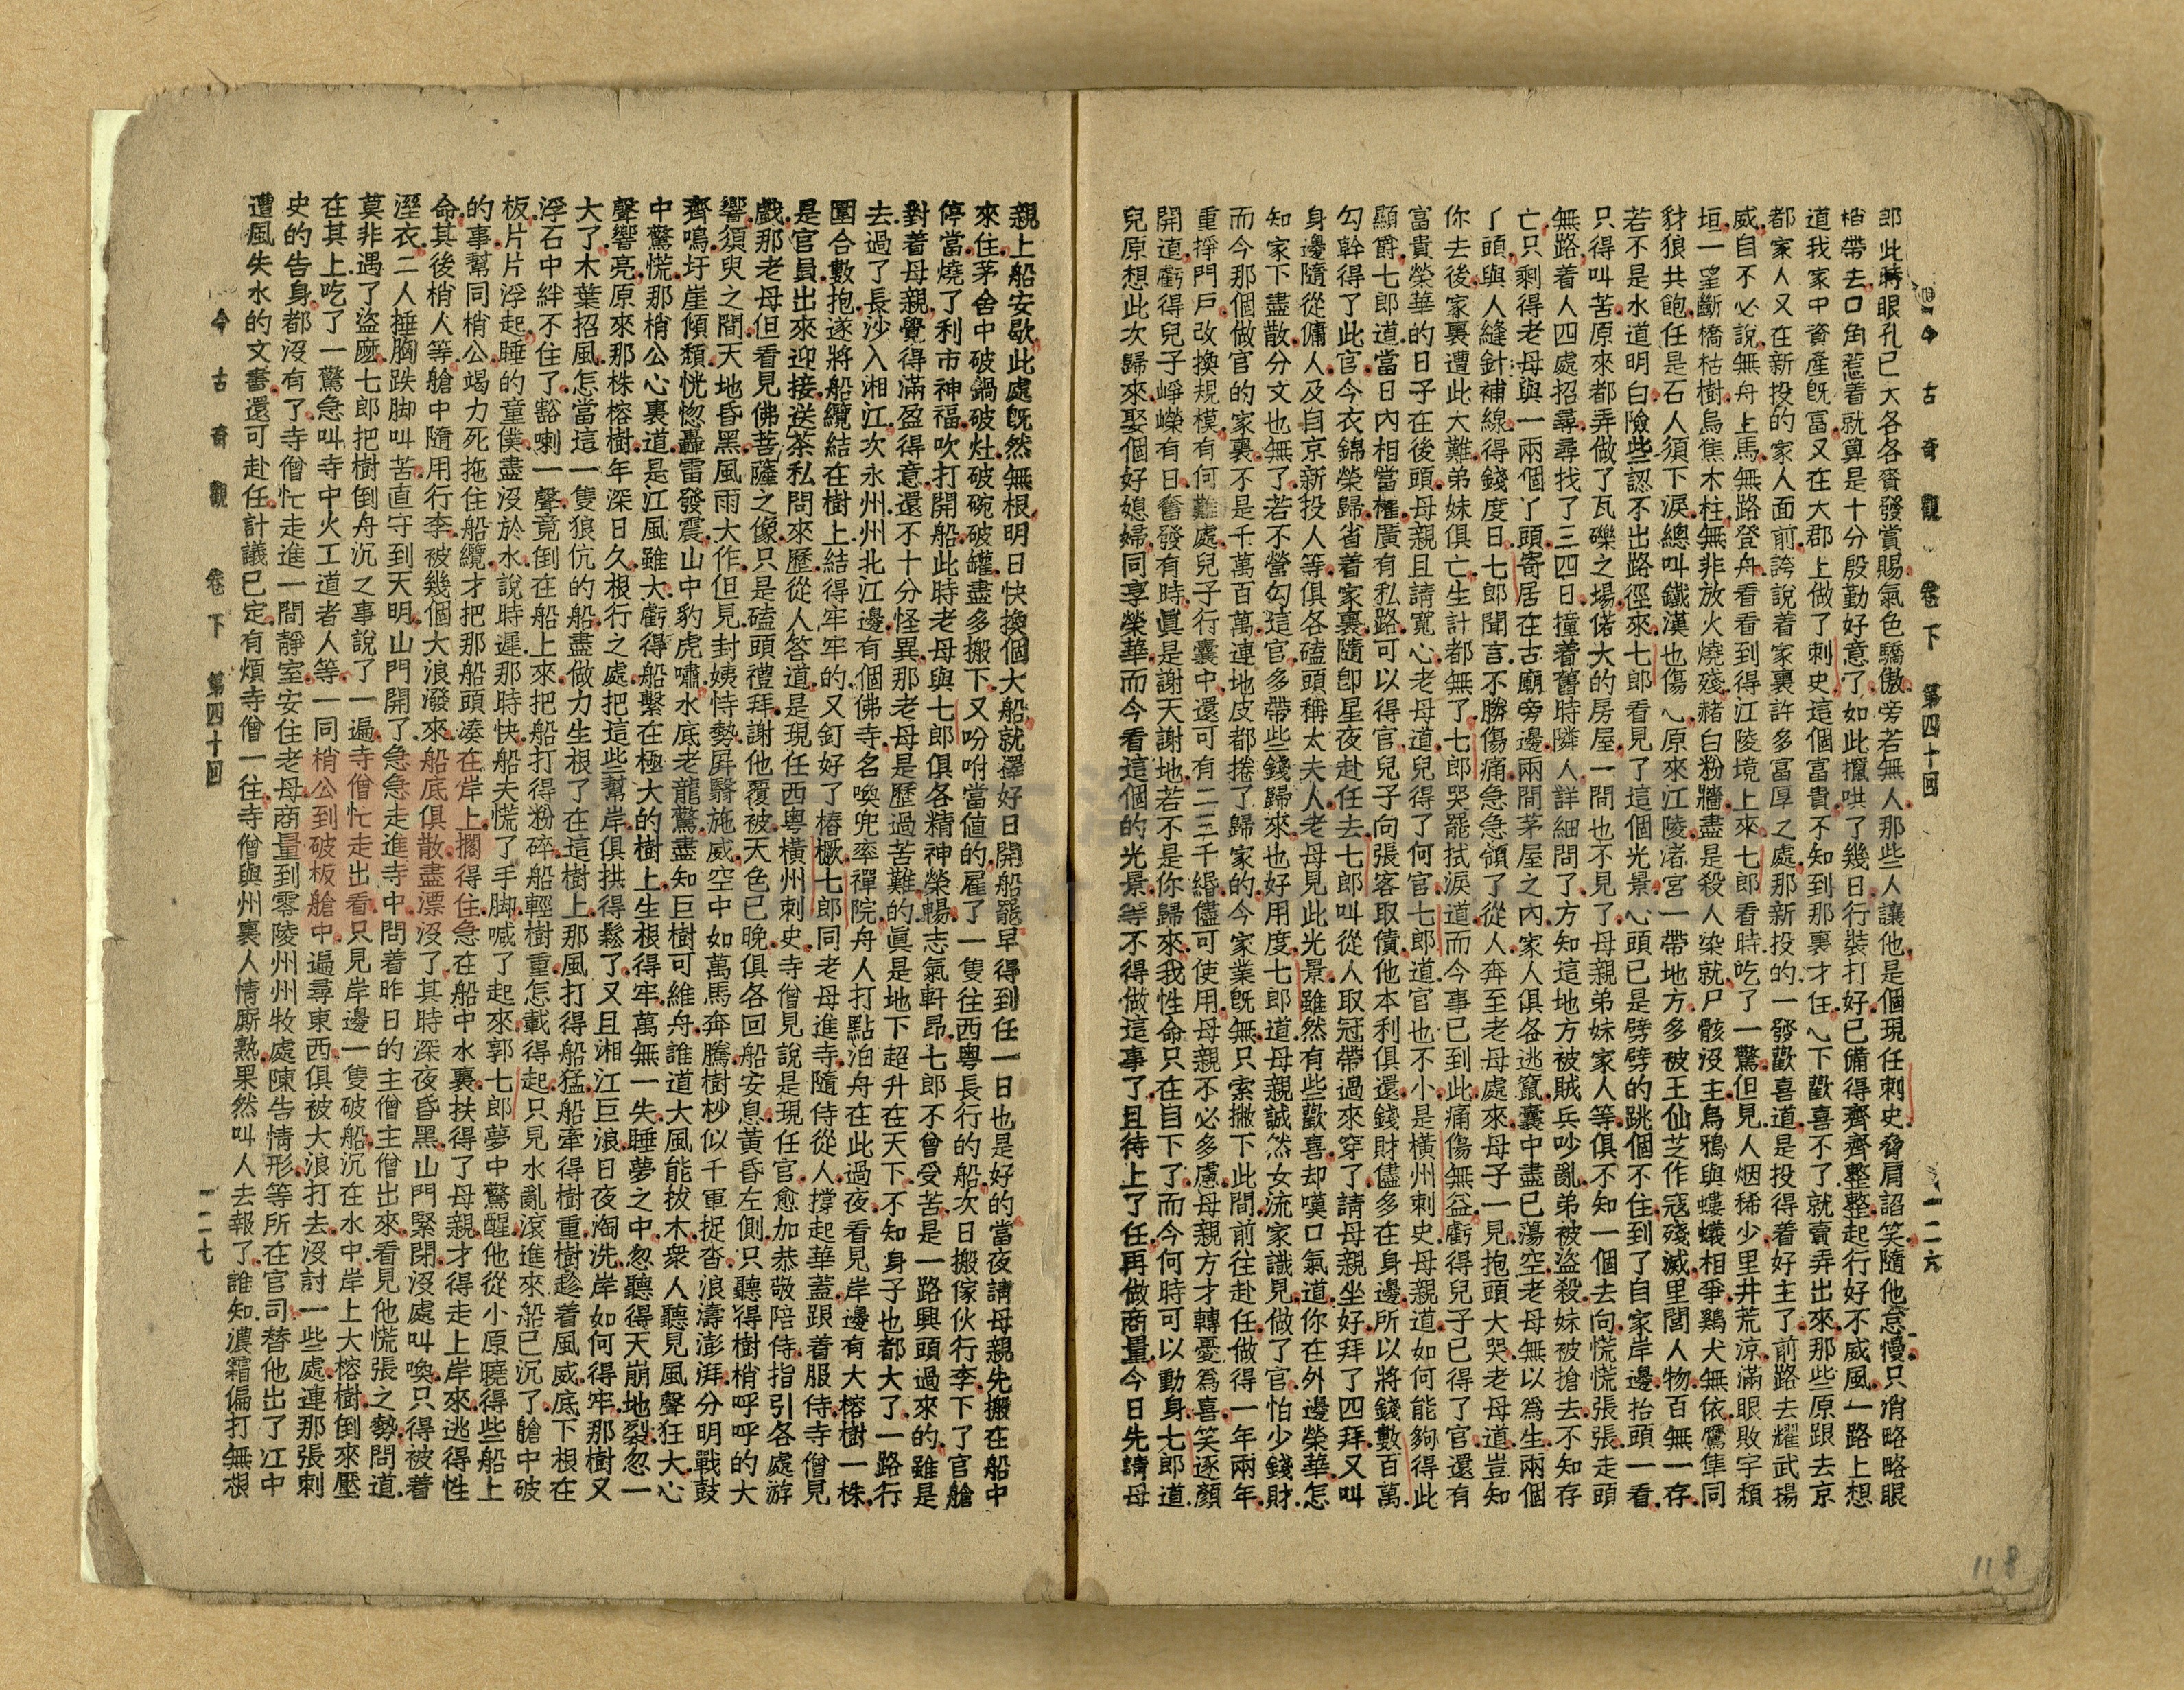 今古奇觀 卷下 第四十回 一二六
郎此時眼孔已大各各賚發賞賜氣色驕傲旁若無人那些人讓他是個現任刺史脅肩諂笑隨他怠慢只消略略眼
梢帶去口角惹着就算是十分殷勤好意了如此攛哄了幾日行裝打好已備得齊齊整整起行好不威風一路上想
道我家中資產既富又在大郡上做了刺史這個富貴不知到那裏才住心下歡喜不了就賣弄出來那些原跟去京
都家人又在新投的家人面前誇說着家裏許多富厚之處那新投的一發歡喜道是投得着好主了前路去耀武揚
威自不必說無舟上馬無路登舟看看到得江陵境上來七郎看時吃了一驚但見人烟稀少里井荒涼滿眼敗宇頹
垣一望斷橋枯樹烏焦木柱無非放火燒殘赭白粉牆盡是殺人染就尸骸沒主烏鴉與螻蟻相爭鷄犬無依鷹隼同
豺狼共飽任是石人須下淚總叫鐵漢也傷心原來江陵渚宮一帶地方多被王仙芝作寇殘滅里閭人物百無一存
若不是水道明白險些認不出路徑來七郎看見了這個光景心頭已是劈劈的跳個不住到了自家岸邊抬頭一看
只得叫苦原來都弄做了瓦礫之場偌大的房屋一間也不見了母親弟妹家人等俱不知一個去向慌慌張張走頭
無路着人四處招尋尋找了三四日撞着舊時隣人詳細問了方知這地方被賊兵吵亂弟被盜殺妹被搶去不知存
亡只剩得老母與一兩個丫頭寄居在古廟旁邊兩間茅屋之內家人俱各逃竄囊中盡已蕩空老母無以爲生兩個
丫頭與人縫針補線得錢度日七郎聞言不勝傷痛急急領了從人奔至老母處來母子一見抱頭大哭老母道豈知
你去後家裏遭此大難弟妹俱亡生計都無了七郎哭罷拭淚道而今事已到此痛傷無益虧得兒子已得了官還有
富貴榮華的日子在後頭母親且請寬心老母道兒得了何官七郎道官也不小是橫州刺史母親道如何能夠得此
顯爵七郎道當日內相當權廣有私路可以得官兒子向張客取債他本利俱還錢財儘多在身邊所以將錢數百萬
勾幹得了此官今衣錦榮歸省着家裏隨卽星夜赴任去七郎叫從人取冠帶過來穿了請母親坐好拜了四拜又叫
身邊隨從傭人及自京新投人等俱各磕頭稱太夫人老母見此光景雖然有些歡喜却嘆口氣道你在外邊榮華怎
知家下盡散分文也無了若不營勾這官多帶些錢歸來也好用度七郎道母親誠然女流家識見做了官怕少錢財
而今那個做官的家裏不是千萬百萬連地皮都捲了歸家的今家業旣無只索撇下此間前往赴任做得一年兩年
重掙門戶改換規模有何難處兒子行囊中還可有二三千緡儘可使用母親不必多慮母親方才轉憂爲喜笑逐顏
開道虧得兒子崢嶸有日奮發有時眞是謝天謝地若不是你歸來我性命只在目下了而今何時可以動身七郎道
兒原想此次歸來娶個好媳婦同享榮華而今看這個的光景等不得做這事了且待上了任再做商量今日先請母
親上船安歇此處旣然無根明日快換個大船就擇好日開船罷早得到任一日也是好的當夜請母親先搬在船中
來住茅舍中破鍋破灶破碗破罐盡多搬下又吩咐當値的雇了一隻往西粵長行的船次日搬傢伙行李下了官艙
停當燒了利市神福吹打開船此時老母與七郎俱各精神榮暢志氣軒昂七郎不曾受苦是一路興頭過來的雖是
對着母親覺得滿盈得意還不十分怪異那老母是歷過苦難的眞是地下超升在天下不知身子也都大了一路行
去過了長沙入湘江次永州州北江邊有個佛寺名喚兜率禪院舟人打點泊舟在此過夜看見岸邊有大榕樹一株
圍合數抱遂將船纜結在樹上結得牢牢的又釘好了樁橛七郎同老母進寺隨侍從人撐起華蓋跟着服侍寺僧見
是官員出來迎接送茶私問來歷從人答道是現任西粵橫州刺史寺僧見說是現任官愈加恭敬陪侍指引各處游
戲那老母但看見佛菩薩之像只是磕頭禮拜謝他覆被天色已晚俱各回船安息黃昏左側只聽得樹梢呼呼的大
響須臾之間天地昏黑風雨大作但見封姨恃勢屛翳施威空中如萬馬奔騰樹杪似千軍捉沓浪濤澎湃分明戰鼓
齊鳴圩崖傾頹恍惚轟雷發震山中豹虎嘯水底老龍驚盡知巨樹可維舟誰道大風能拔木衆人聽見風聲狂大心
中驚慌那梢公心裏道是江風雖大虧得船繫在極大的樹上生根得牢萬無一失睡夢之中忽聽得天崩地裂忽一
聲響亮原來那株榕樹年深日久根行之處把這些幫岸俱拱得鬆了又且湘江巨浪日夜淘洗岸如何得牢那樹又
大了木葉招風怎當這一隻狼伉的船盡做力生根了在這樹上那風打得船猛船牽得樹重樹趁着風威底下根在
浮石中絆不住了豁喇一聲竟倒在船上來把船打得粉碎船輕樹重怎載得起只見水亂滾進來船已沉了艙中破
板片片浮起睡的童僕盡沒於水說時遲那時快船夫慌了手脚喊了起來郭七郎夢中驚醒他從小原曉得些船上
的事幫同梢公竭力死拖住船纜才把那船頭湊在岸上擱得住急在船中水裏扶得了母親才得走上岸來逃得性
命其後梢人等艙中隨用行李被幾個大浪潑來船底俱散盡漂沒了其時深夜昏黑山門緊閉沒處叫喚只得被着
溼衣二人捶胸跌脚叫苦直守到天明山門開了急急走進寺中問着昨日的主僧主僧出來看見他慌張之勢問道
莫非遇了盜麽七郎把樹倒舟沉之事說了一遍寺僧忙走出看只見岸邊一隻破船沉在水中岸上大榕樹倒來壓
在其上吃了一驚急叫寺中火工道者人等一同梢公到破板艙中遍尋東西俱被大浪打去沒討一些處連那張刺
史的告身都沒有了寺僧忙走進一間靜室安住老母商量到零陵州州牧處陳告情形等所在官司替他出了江中
遭風失水的文書還可赴任計議已定有煩寺僧一往寺僧與州裏人情廝熟果然叫人去報了誰知濃霜偏打無根
今古奇觀 卷下 第四十回 一二七
118